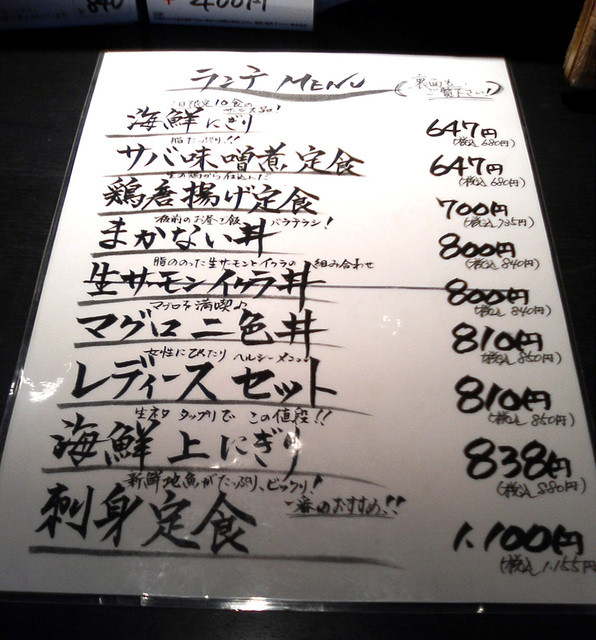 840
400円
ランチ MENU
裏面も
ご覧下さい!
1日限定10食の サービス品!
海鮮にぎり 647円
(税込680円)
脂たっぷり!!
サバ味噌煮定食 647円
(税込680円)
生の鶏から仕込んだ
鶏唐揚げ定食 700円
(税込735円)
板前のお昼ご飯 バラチラシ!
まかない丼 800円
(税込840円)
脂ののった生サーモンとイクラの組み合わせ
生サーモンイクラ丼 800円
(税込840円)
マグロを満喫♪
マグロ二色丼 810円
(税込850円)
女性にぴったり ヘルシーメニュー
レディースセット 810円
(税込850円)
生ネタ タップリで この値段!!
海鮮上にぎり 838円
(税込880円)
新鮮地魚がたっぷり、ビックリ! 一番のおすすめ!!
刺身定食 1,100円
(税込1,155円)